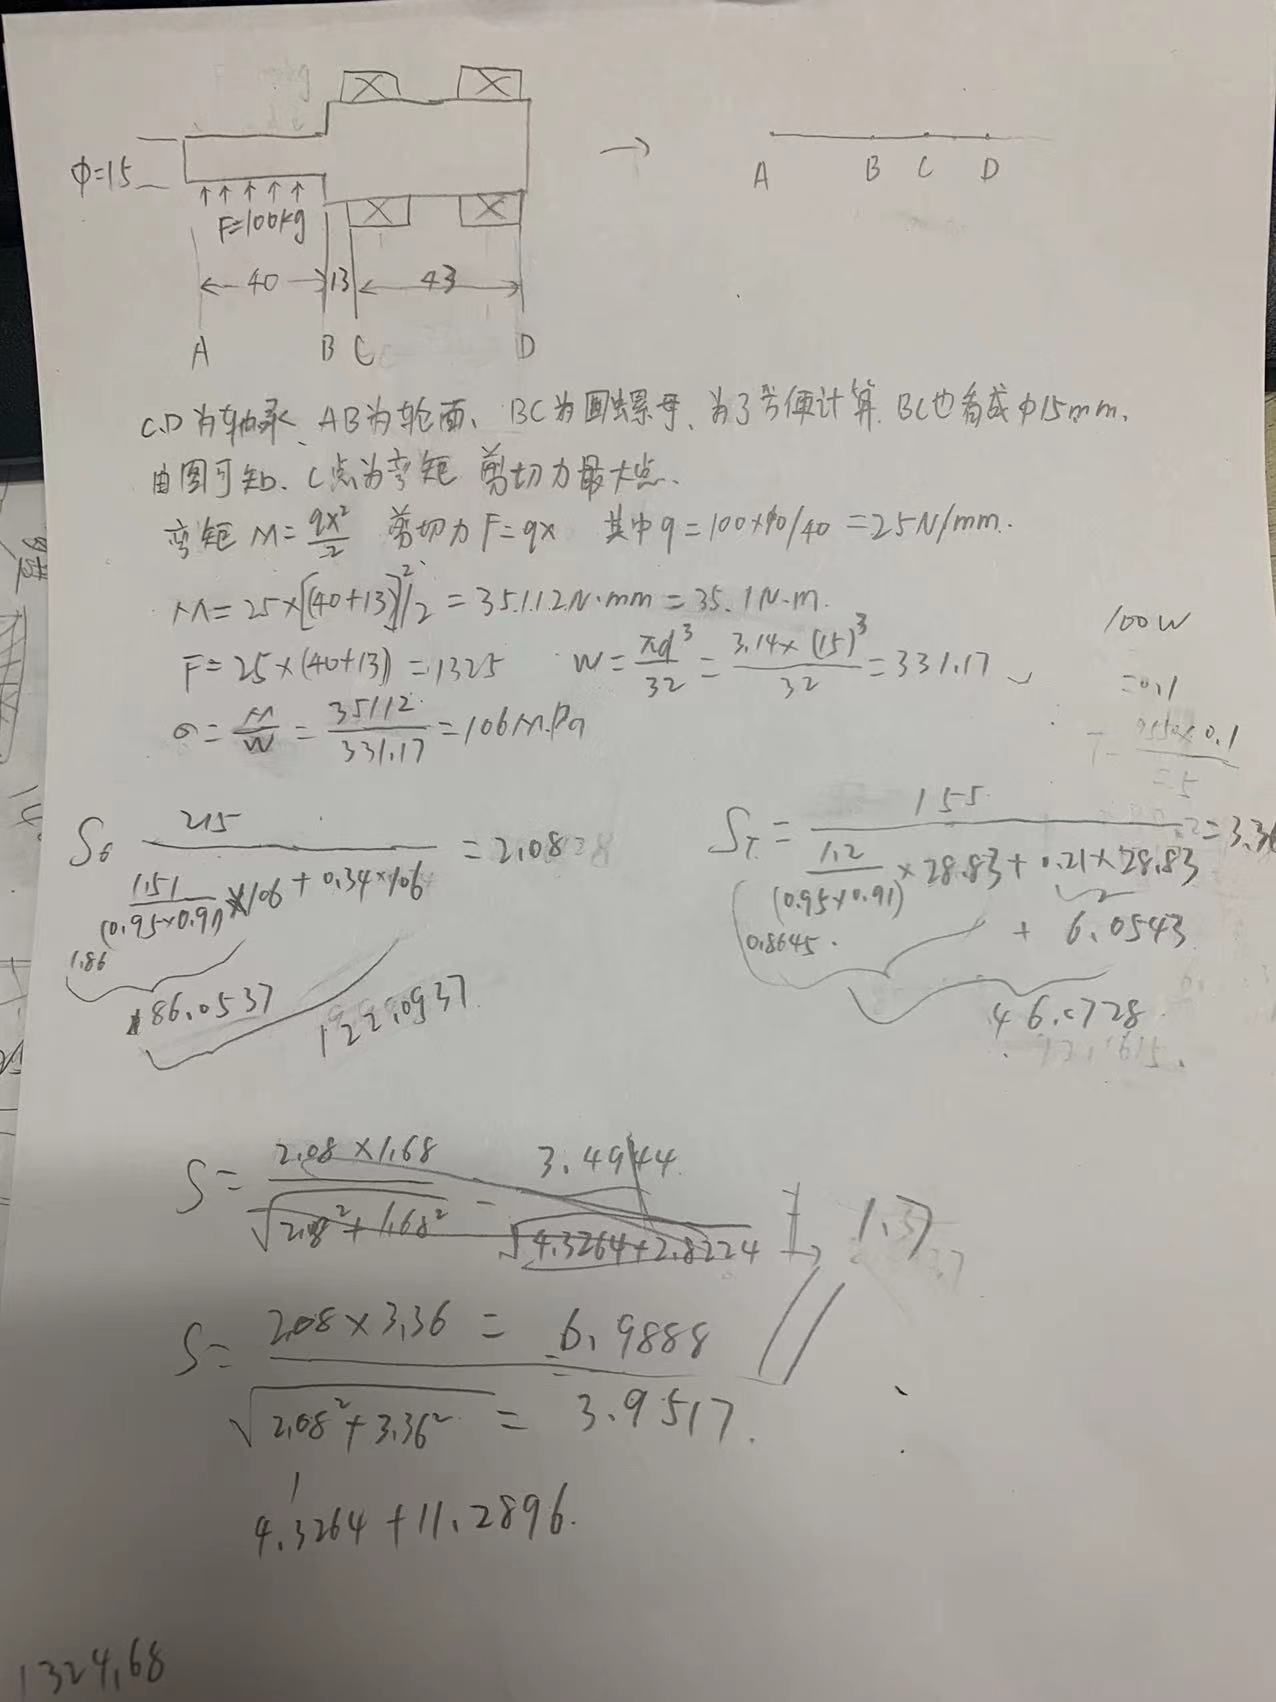 φ=15
F=100kg
40 13 43
A B C D
→
A B C D
C.D为轴承、AB为轮面、BC为圆螺母、为了方便计算.BC也看成φ15mm.
由图可知、C点为弯矩 剪切力最大点、
弯矩 M=qx²/2 剪切力 F=qx 其中q=100×10/40=25N/mm.
M=25×[(40+13)]²/2=35112N·mm=35.1N·m.
F=25×(40+13)=1325 W=πd³/32=3.14×(15)³/32=331.17
σ=M/W=35112/331.17=106MPa
100W
=0.1
9550×0.1
=5
S6 215/(1.51/(0.95×0.91)×106+0.34×106)=2.08
1.86
186.0537
122.0937
Sτ=155/(1.2/(0.95×0.91)×28.83+0.21×28.83)=3.36
0.8645.
+ 6.0543
46.0728
S=2.08×1.68/√2.08²+1.68² - 3.4944/√4.3264+2.8224
1.37
S=2.08×3.36/√2.08²+3.36² = 6.9888/3.9517.
4.3264+11.2896.
1324.68